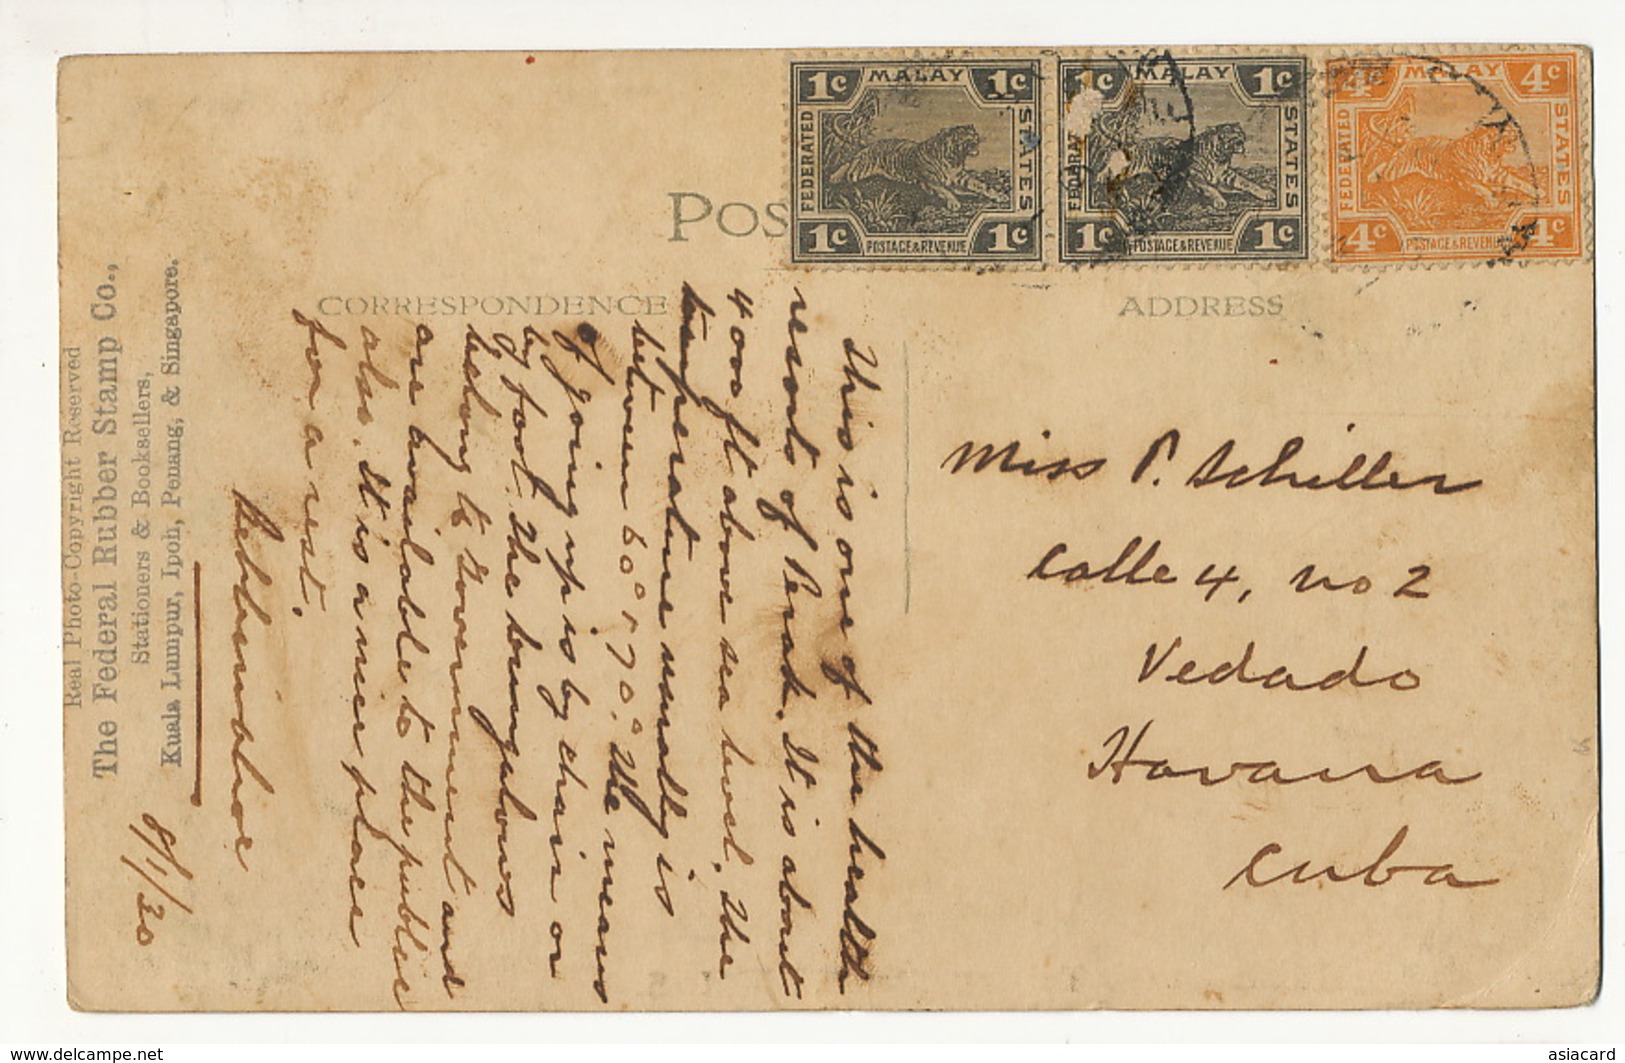 1c MALAY 1c
FEDERATED STATES
1c POSTAGE & REVENUE 1c
1c MALAY 1c
FEDERAT STATES
1c POSTAGE & REVENUE 1c
4c MALAY 4c
FEDERATED STATES
4c POSTAGE & REVENUE 4c
POS
CORRESPONDENCE
ADDRESS
This is one of the health
resorts of Perak. It is about
4000 ft above sea level, the
temperature usually is
between 60° & 70°. The means
of going up is by chair or
by foot. The bungalows
belong to Government and
are available to the public
also. It is a nice place
for a rest.
8/1/20
Miss P. Schiller
Calle 4, no 2
Vedado
Havana
Cuba
Real Photo-Copyright Reserved
The Federal Rubber Stamp Co.,
Stationers & Booksellers,
Kuala Lumpur, Ipoh, Penang, & Singapore.
www.delcampe.net
asiacard